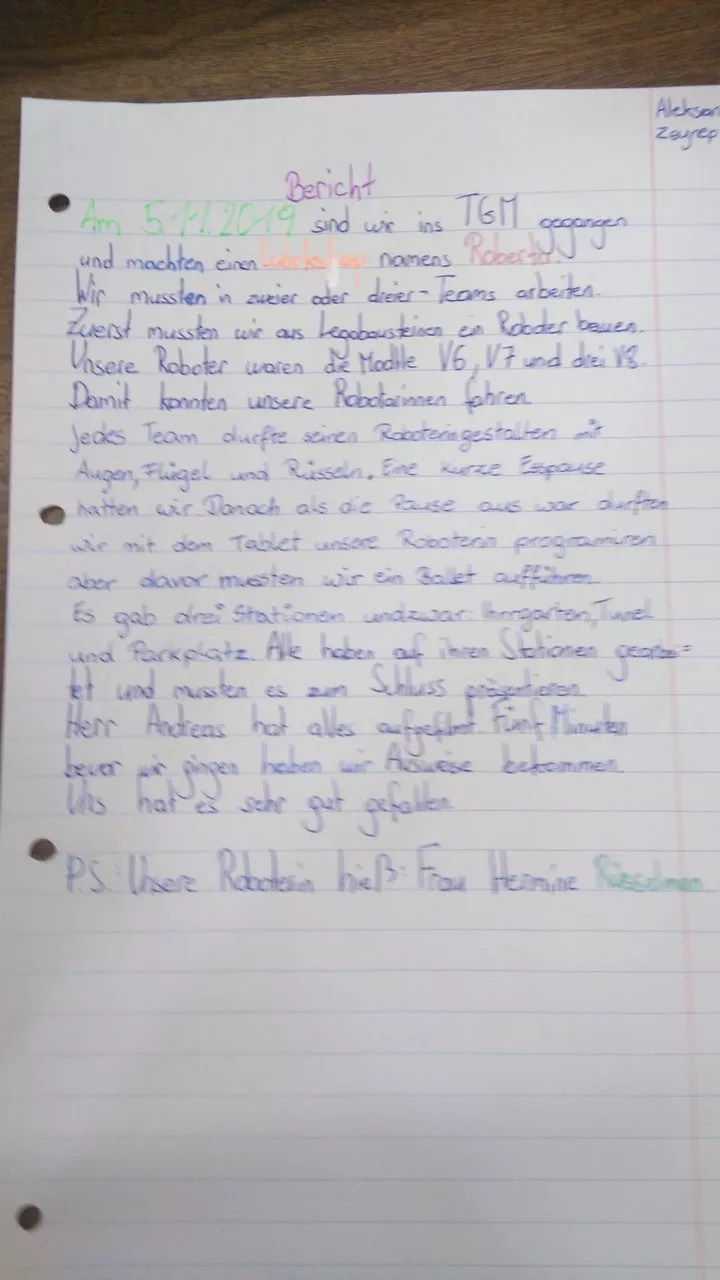 Aleksan
Zeyrep
Bericht
Am 5.11.2019 sind wir ins TGM gegangen
und machten einen Workshop namens Roberta
Wir mussten in zweier oder dreier-Teams arbeiten.
Zuerst mussten wir aus Legobausteinen ein Roboter bauen.
Unsere Roboter waren die Modlle V6, V7 und drei V8.
Damit konnten unsere Roboterinnen fahren.
Jedes Team durfte seinen Roboterin gestalten mit
Augen, Flügel und Rüsseln. Eine kurze Esspause
hatten wir. Danach als die Pause aus war durften
wir mit dem Tablet unsere Roboterin programmiren
aber davor mussten wir ein Ballet aufführen.
Es gab drei Stationen undzwar: Ihrrgarten, Tunnel
und Parkplatz. Alle haben auf ihren Stationen gearbei=
tet und mussten es zum Schluss präsentieren.
Herr Andreas hat alles Fünf Minuten
bevor wir gingen haben wir Ausweise bekommen.
Uns hat es sehr gut gefallen.
P.S.: Unsere Roboterin hieß: Frau Hermine